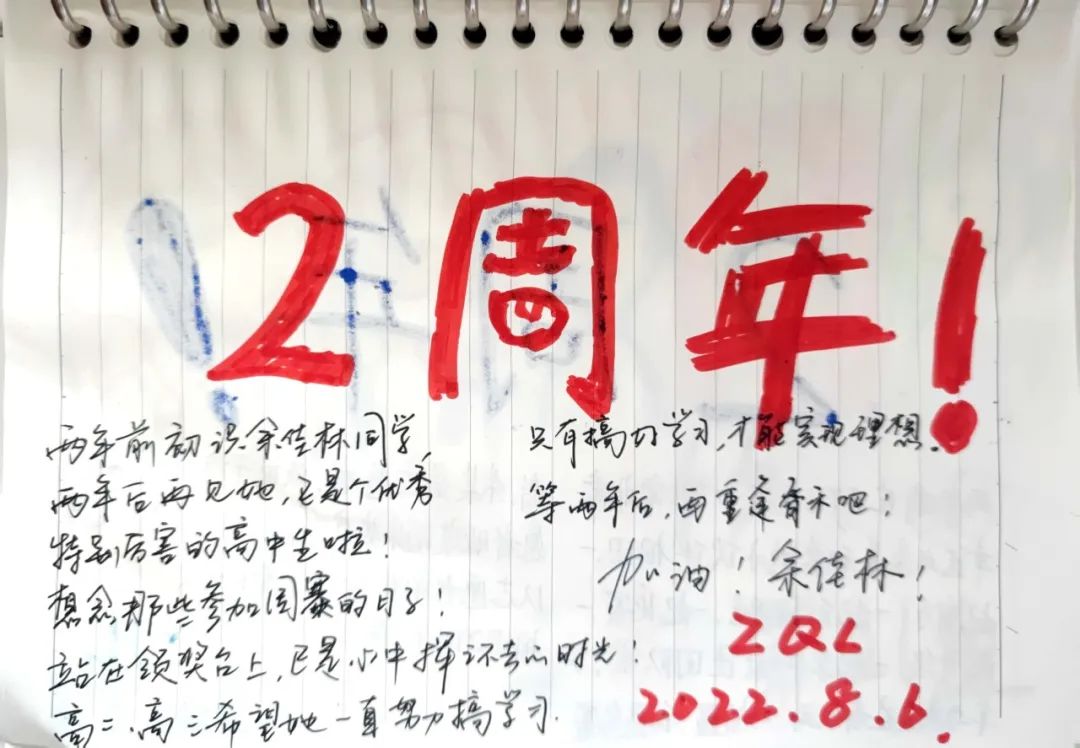 2周年!
两年前初识余佳林同学,
两年后再见她,已是个优秀
特别厉害的高中生啦!
想念那些参加周赛的日子!
站在领奖台上,已是心中挥不去的时光!
高二、高三希望她一直努力搞学习.
只有搞好学习,才能实现理想.
等两年后,再重逢春禾吧!
加油!余佳林!
ZQL
2022.8.6.